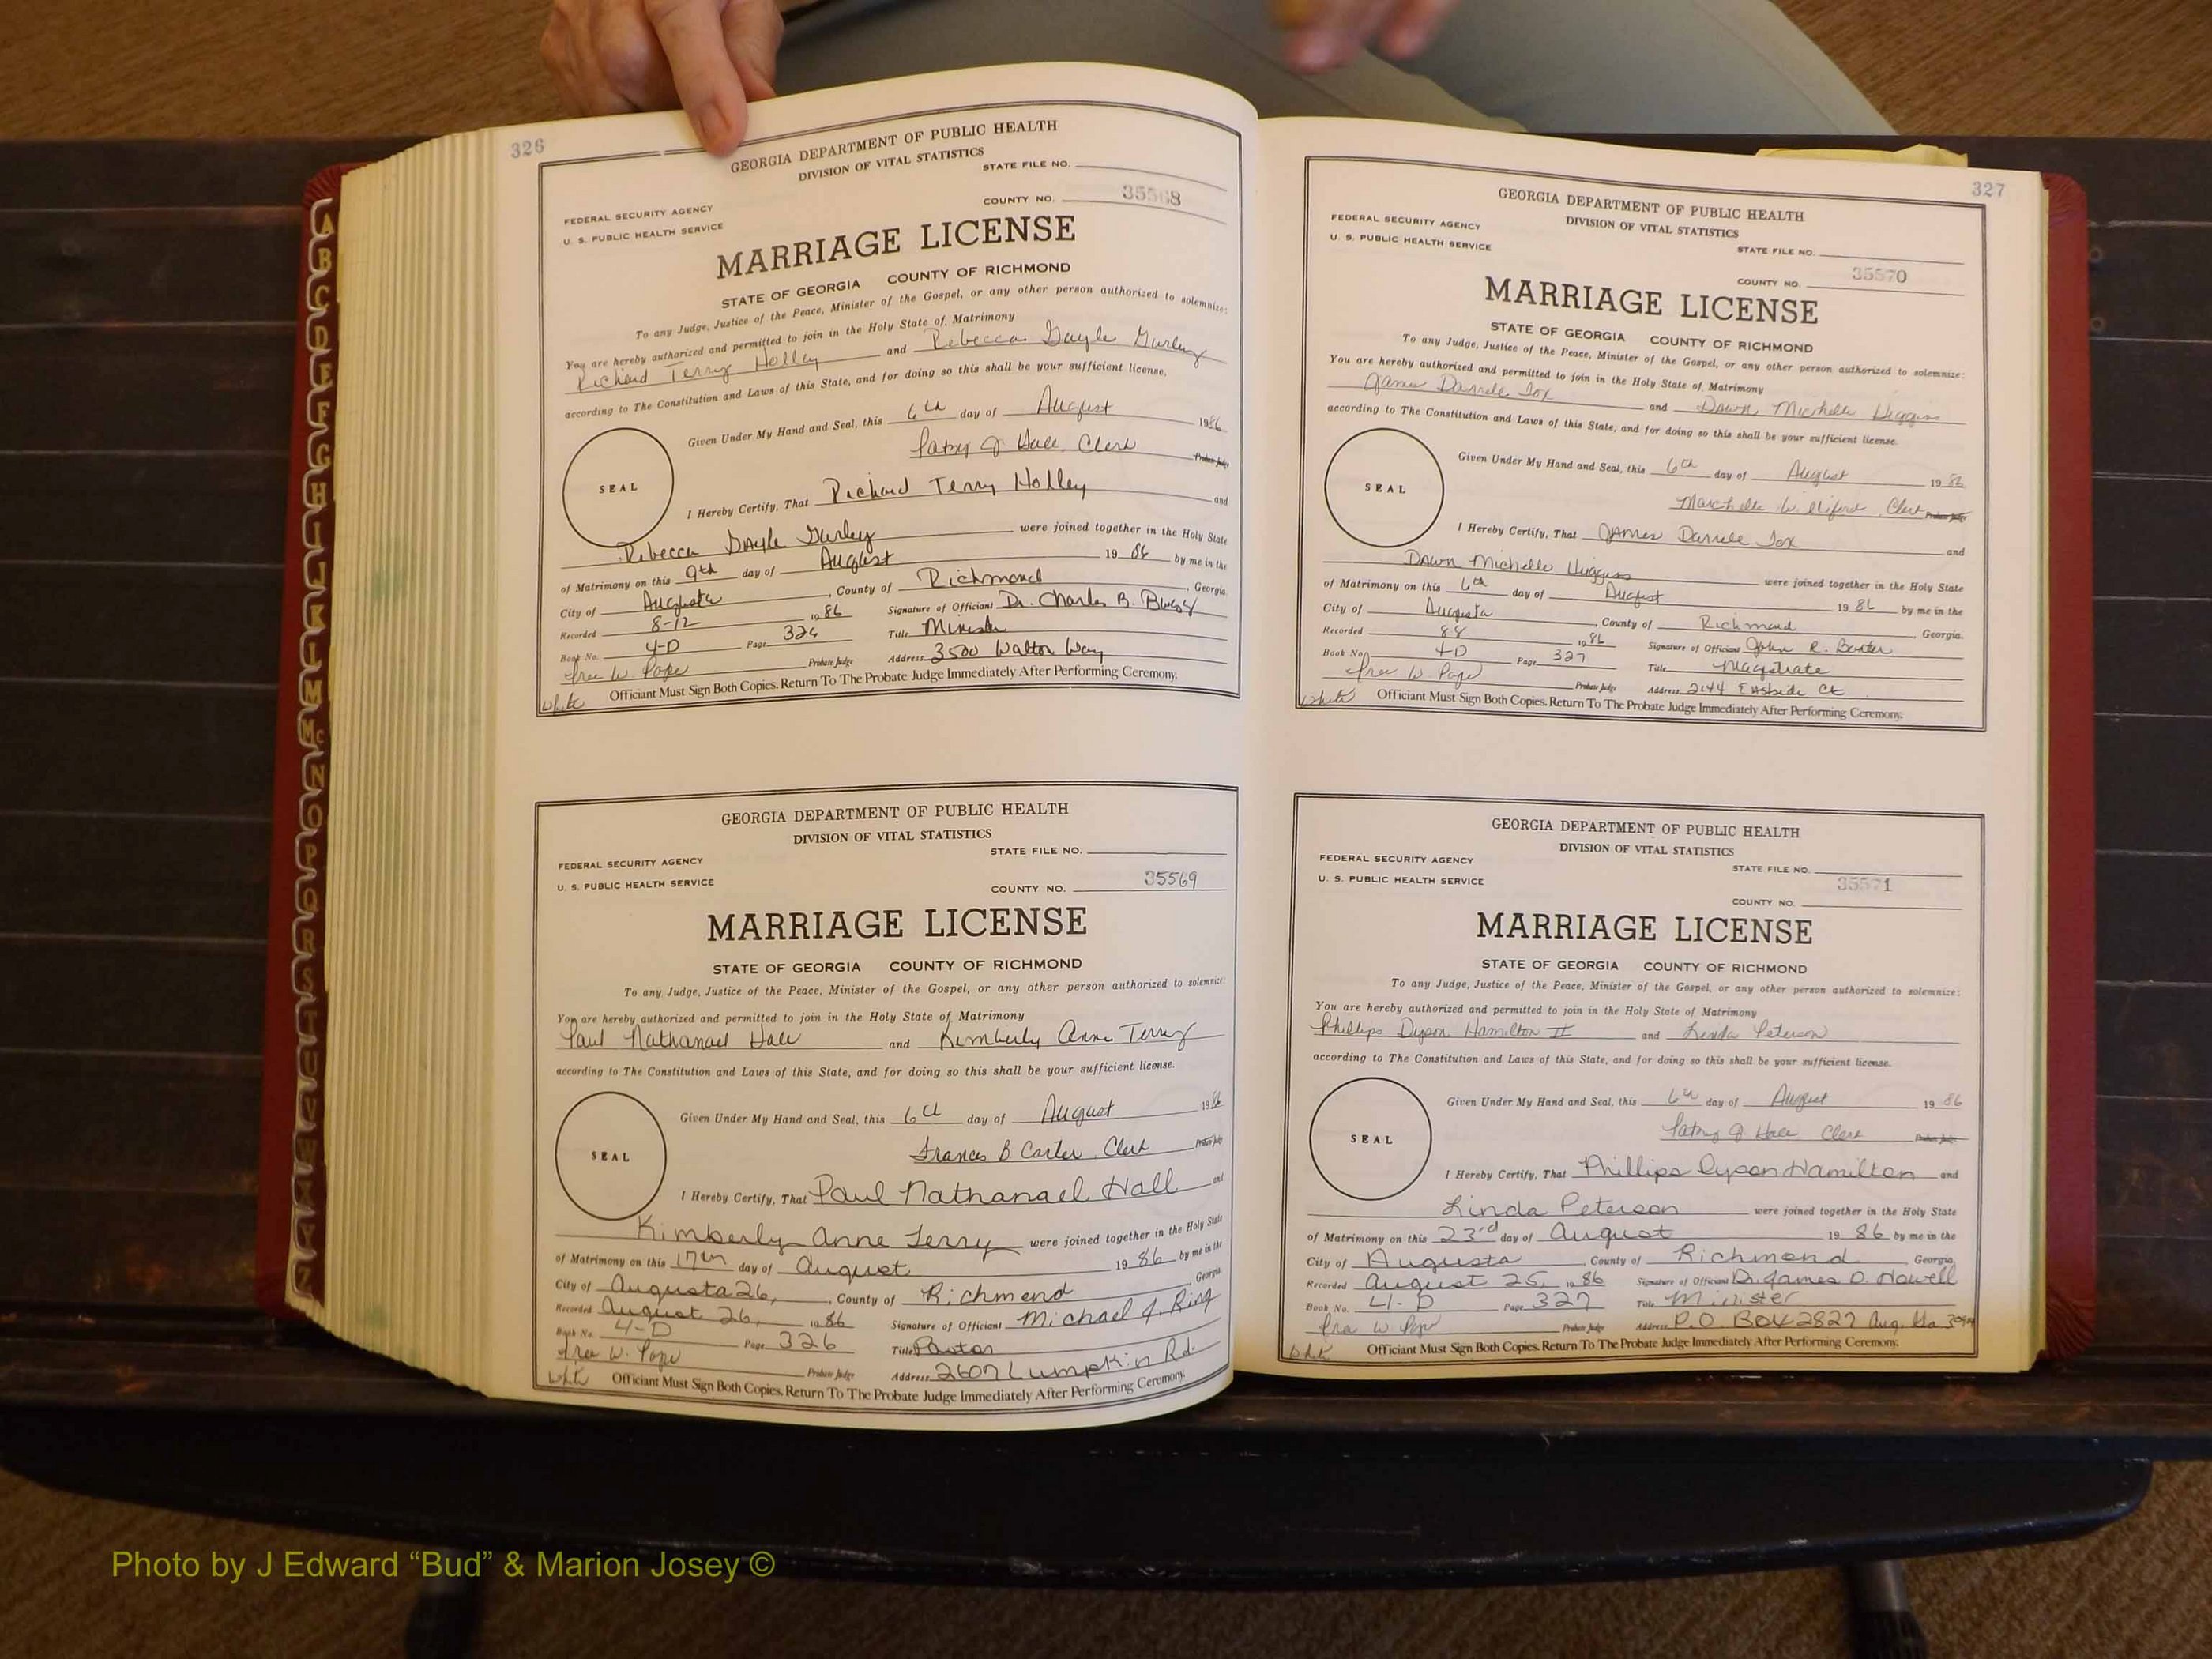 326
GEORGIA DEPARTMENT OF PUBLIC HEALTH
DIVISION OF VITAL STATISTICS
STATE FILE NO.
FEDERAL SECURITY AGENCY
U. S. PUBLIC HEALTH SERVICE
COUNTY NO. 35568
MARRIAGE LICENSE
STATE OF GEORGIA COUNTY OF RICHMOND
To any Judge, Justice of the Peace, Minister of the Gospel, or any other person authorized to solemnize:
You are hereby authorized and permitted to join in the Holy State of Matrimony
Richard Terry Holley and Rebecca Gayle Gurley
according to The Constitution and Laws of this State, and for doing so this shall be your sufficient license.
Given Under My Hand and Seal, this 6th day of August 1986
Patsy J Hall, Clerk Probate Judge
SEAL
I Hereby Certify, That Richard Terry Holley and
Rebecca Gayle Gurley were joined together in the Holy State
of Matrimony on this 9th day of August 19 86 by me in the
City of Augusta, County of Richmond, Georgia.
Recorded 8-12 1986 Signature of Officiant Dr. Charles B.
Book No. 4-D Page 326 Title Minister
W. Pope Probate Judge Address 3500 Walton Way
White Officiant Must Sign Both Copies. Return To The Probate Judge Immediately After Performing Ceremony.
GEORGIA DEPARTMENT OF PUBLIC HEALTH
DIVISION OF VITAL STATISTICS
STATE FILE NO.
FEDERAL SECURITY AGENCY
U. S. PUBLIC HEALTH SERVICE
COUNTY NO. 35569
MARRIAGE LICENSE
STATE OF GEORGIA COUNTY OF RICHMOND
To any Judge, Justice of the Peace, Minister of the Gospel, or any other person authorized to solemnize:
You are hereby authorized and permitted to join in the Holy State of Matrimony
Paul Nathanael Hall and Kimberly Anne Terry
according to The Constitution and Laws of this State, and for doing so this shall be your sufficient license.
Given Under My Hand and Seal, this 6th day of August 1986
Frances B Carter, Clerk Probate Judge
SEAL
I Hereby Certify, That Paul Nathanael Hall and
Kimberly Anne Terry were joined together in the Holy State
of Matrimony on this 17th day of August 19 86 by me in the
City of Augusta 26, County of Richmond Georgia
Recorded August 26, 1986 Signature of Officiant Michael J. Ring
Book No. 4-D Page 326 Title Pastor
W. Pope Probate Judge Address 2607 Lumpkin Rd.
White Officiant Must Sign Both Copies. Return To The Probate Judge Immediately After Performing Ceremony.
327
GEORGIA DEPARTMENT OF PUBLIC HEALTH
DIVISION OF VITAL STATISTICS
FEDERAL SECURITY AGENCY
U. S. PUBLIC HEALTH SERVICE
STATE FILE NO.
COUNTY NO. 35570
MARRIAGE LICENSE
STATE OF GEORGIA COUNTY OF RICHMOND
To any Judge, Justice of the Peace, Minister of the Gospel, or any other person authorized to solemnize:
You are hereby authorized and permitted to join in the Holy State of Matrimony
James Darrele Fox and Dawn Michelle Huggins
according to The Constitution and Laws of this State, and for doing so this shall be your sufficient license.
Given Under My Hand and Seal, this 6th day of August 19 86
Marchelle Williford, Clerk Probate Judge
SEAL
I Hereby Certify, That James Darrele Fox and
Dawn Michelle Huggins were joined together in the Holy State
of Matrimony on this 6th day of August 19 86 by me in the
City of Augusta, County of Richmond, Georgia.
Recorded 88 1986 Signature of Officiant John R. Baxter
Book No. 4-D Page 327 Title Magistrate
W. Pope Probate Judge Address 2144 Eastside Ct
White Officiant Must Sign Both Copies. Return To The Probate Judge Immediately After Performing Ceremony.
GEORGIA DEPARTMENT OF PUBLIC HEALTH
DIVISION OF VITAL STATISTICS
FEDERAL SECURITY AGENCY
U. S. PUBLIC HEALTH SERVICE
STATE FILE NO.
35571
COUNTY NO.
MARRIAGE LICENSE
STATE OF GEORGIA COUNTY OF RICHMOND
To any Judge, Justice of the Peace, Minister of the Gospel, or any other person authorized to solemnize:
You are hereby authorized and permitted to join in the Holy State of Matrimony
Phillips Dyson Hamilton II and Linda Peterson
according to The Constitution and Laws of this State, and for doing so this shall be your sufficient license.
Given Under My Hand and Seal, this 6th day of August 19 86
Patsy J Hall Clerk Probate Judge
SEAL
I Hereby Certify, That Phillips Dyson Hamilton and
Linda Peterson were joined together in the Holy State
of Matrimony on this 23rd day of August 19 86 by me in the
City of Augusta, County of Richmond Georgia
Recorded August 25, 1986 Signature of Officiant Dr. James D. Howell
Book No. 4-D Page 327 Title Minister
W Pope Probate Judge Address P.O. Box 2827 Aug. Ga.
White Officiant Must Sign Both Copies. Return To The Probate Judge Immediately After Performing Ceremony.
A
B
C
D
E
F
G
H
I
J
K
L
M
Mc
N
O
P
Q
R
S
T
U
V
W
Y
Z
Photo by J Edward “Bud” & Marion Josey ©